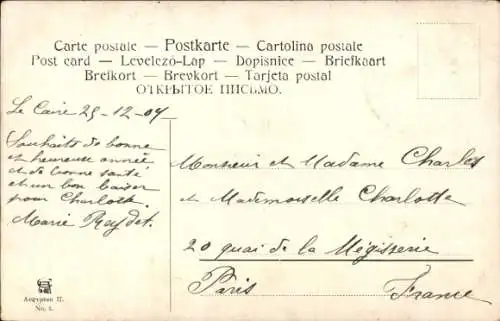 Carte postale — Postkarte — Cartolina postale
Post card — Levelező-Lap — Dopisnice — Briefkaart
Brefkort — Brevkort — Tarjeta postal
ОТКРЫТОЕ ПИСЬМО.
Le Caire 25-12-04
Souhaits de bonne
et heureuse année
et de bonne santé
et un bon baiser
pour Charlotte.
Marie
Monsieur et Madame Charles
et Mademoiselle Charlotte
20 quai de la Mégisserie
Paris
France
Aegypten II.
No. 1.